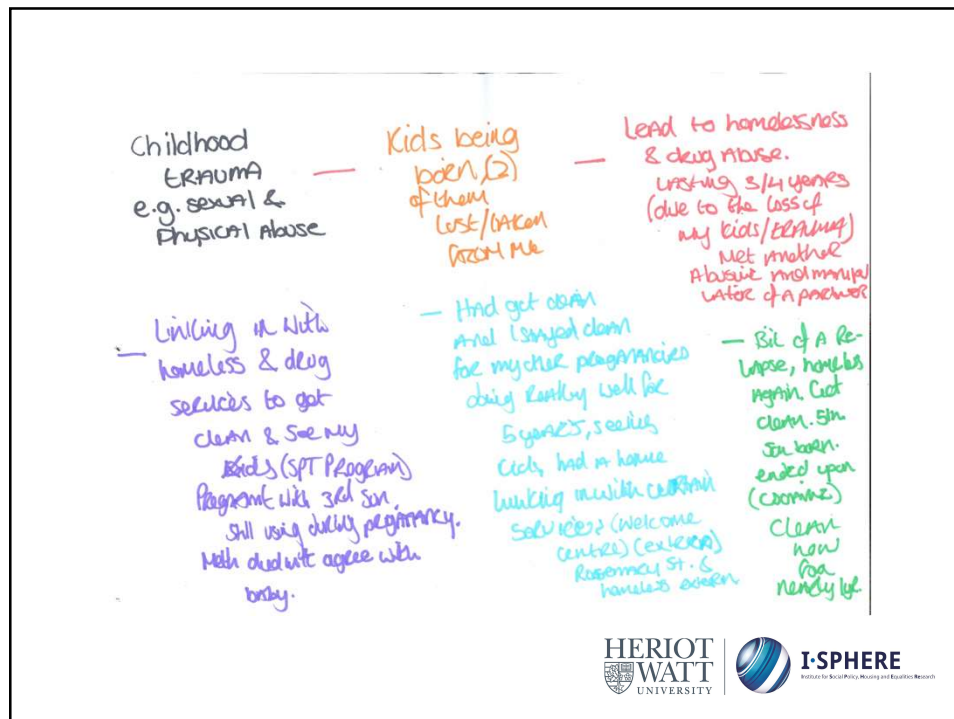 Childhood
TRAUMA
e.g. sexual &
Physical Abuse
—
Kids being
born, (2)
of them
lost/taken
from me
—
Lead to homelessness
& drug Abuse.
Lasting 3/4 years
(due to the loss of
my kids/TRAUMA)
Met another
Abusive and manipu
lator of a partner
— Linking in with
homeless & drug
services to get
clean & see my
kids (SPT PROGRAM)
Pregnant with 3rd Son.
Still using during pregnancy.
Meth didn't agree with
baby.
— Had got clean
And I stayed clean
for my other pregnancies
doing really well for
5 years, seeing
kids, had a home
linking in with certain
services: (Welcome
centre) (extern)
Rosemary St. &
homeless extern
— Bit of A Re-
lapse, homeless
Again. Got
clean. 5th
Son born.
ended up on
Clean
now
for
nearly 1yr.
HERIOT
WATT
UNIVERSITY
I·SPHERE
Institute for Social Policy, Housing and Equalities Research